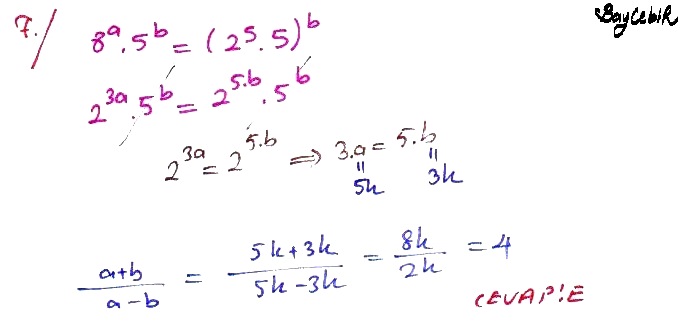 7./
BayCebiR
8^a . 5^b = (2^5 . 5)^b
2^{3a} . 5^b = 2^{5.b} . 5^b
2^{3a} = 2^{5.b} ⇒ 3.a = 5.b
" "
5k 3k
\frac{a+b}{a-b} = \frac{5k+3k}{5k-3k} = \frac{8k}{2k} = 4
CEVAP!E